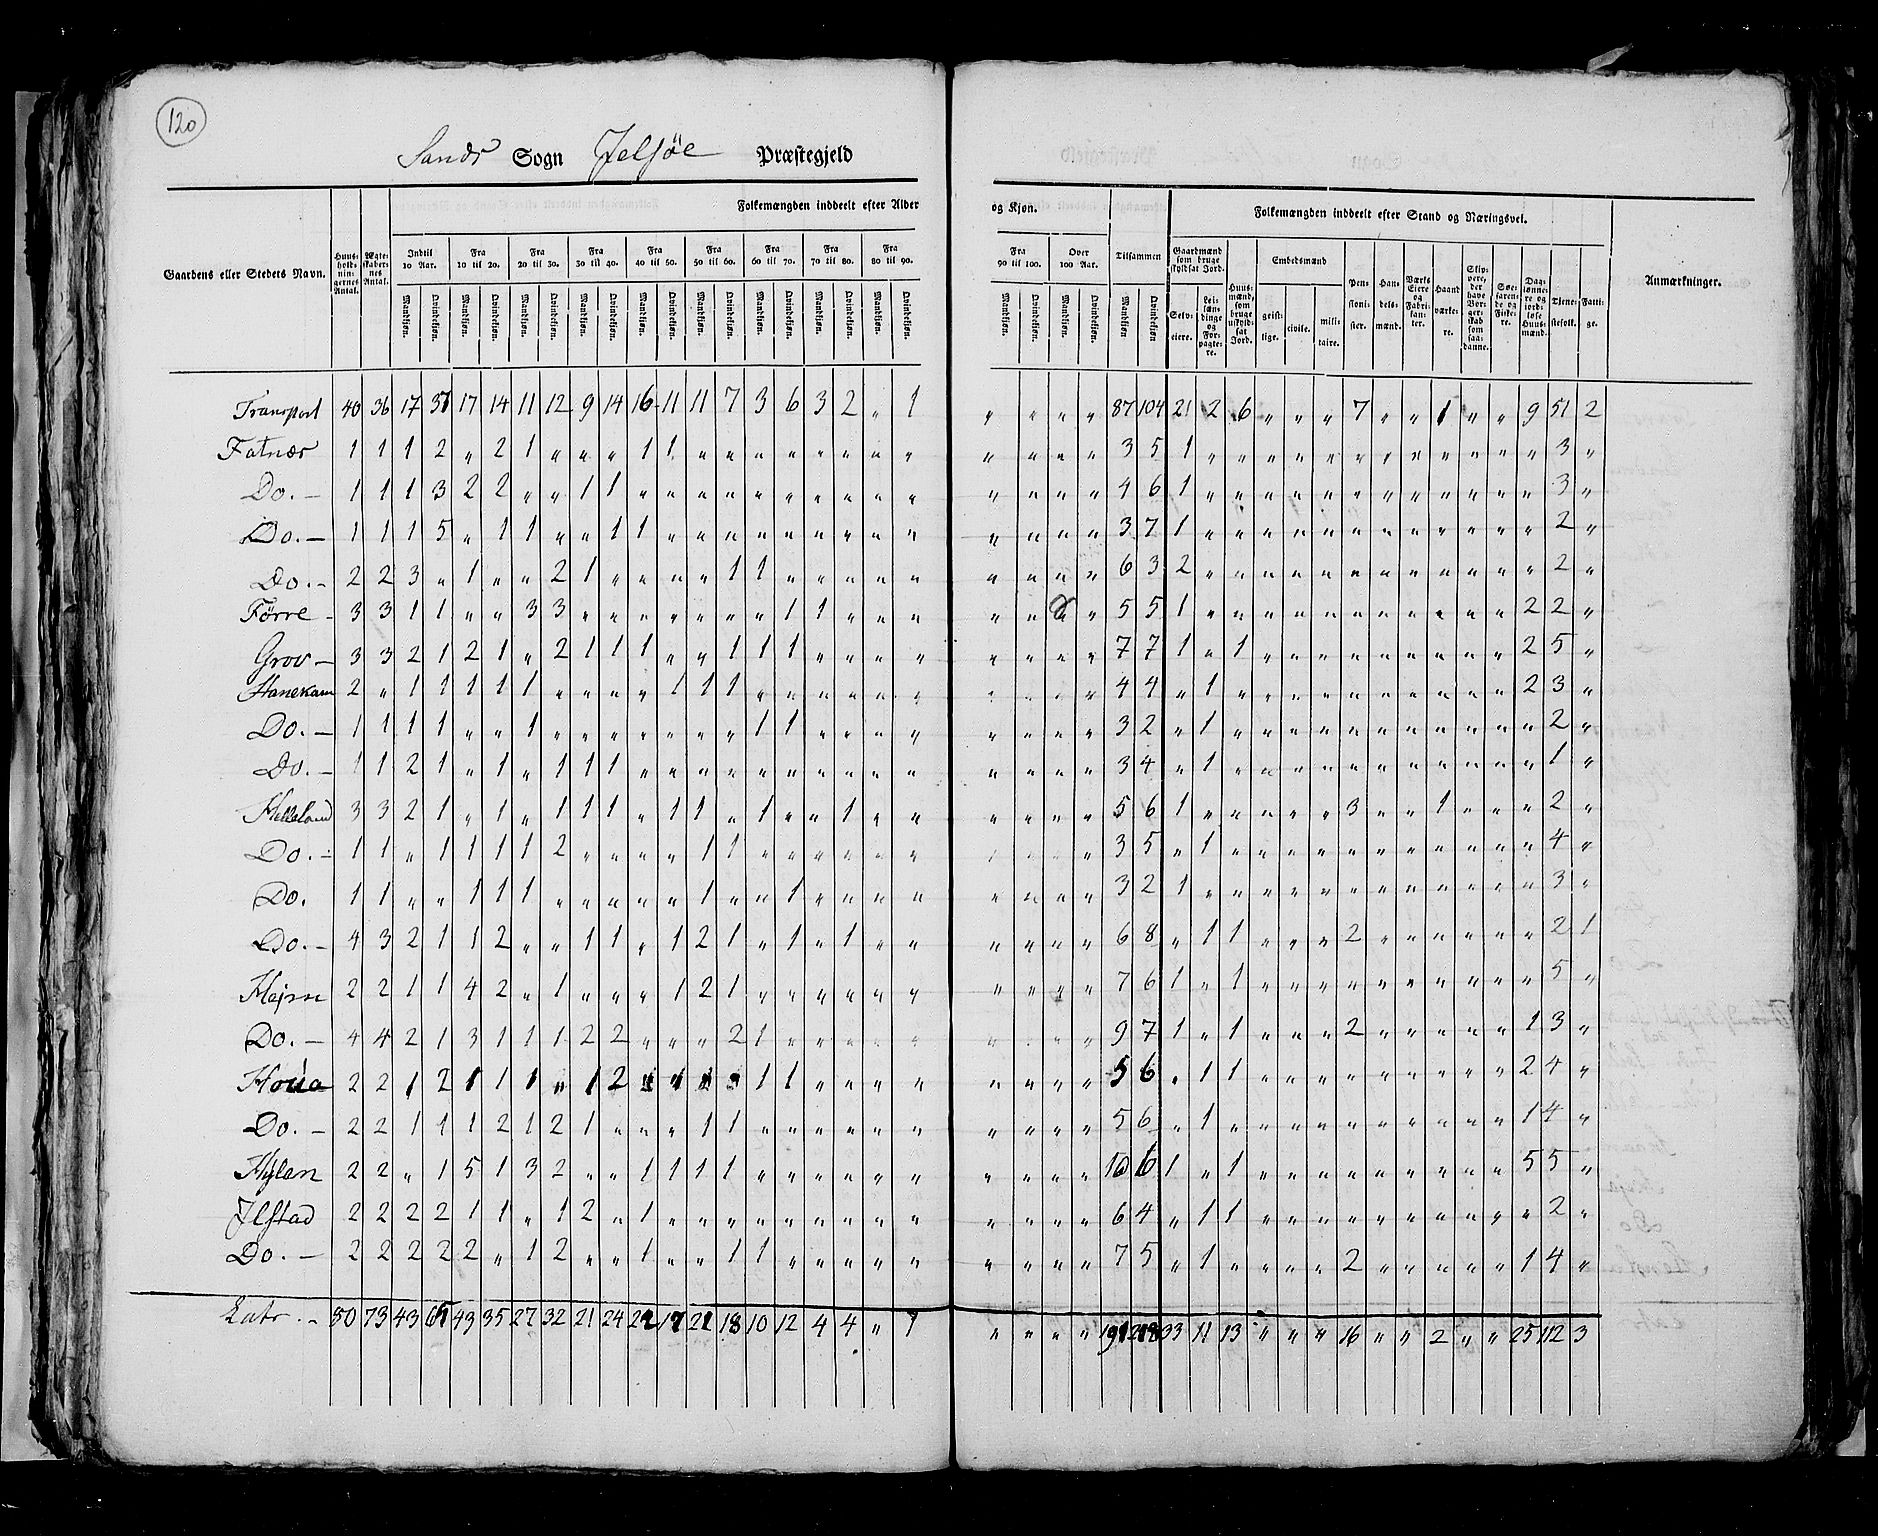 120
Sands Sogn Jelsöe Præstegjeld
Folkemængden inddeelt efter Alder og Kjøn.
Folkemængden inddeelt efter Stand og Næringsvei.
Gaardens eller Stedets Navn. Huus-holdnin-gernes Antal. Ægte-skaber-nes Antal. Indtil 10 Aar. Fra 10 til 20. Fra 20 til 30. Fra 30 til 40. Fra 40 til 50. Fra 50 til 60. Fra 60 til 70. Fra 70 til 80. Fra 80 til 90. Fra 90 til 100. Over 100 Aar. Tilsammen Gaardmænd som bruge skyldsat Jord. Huus-mænd, som bruge uskyld-sat Jord. Embedsmænd Pen-sioni-ster. Han-dels-mænd. Værks Eiere og Fabri-kan-ter. Haand-værke-re. Skip-pere, der have Bor-ger-skab som saa-danne. Søe-faren-de og Fiske-re. Dag-lønne-re og jord-løse Huus-mænd. Tjene-stefolk. Fatti-ge. Anmærkninger.
Mandkjøn. Qvindekjøn. Mandkjøn. Qvindekjøn. Mandkjøn. Qvindekjøn. Mandkjøn. Qvindekjøn. Mandkjøn. Qvindekjøn. Mandkjøn. Qvindekjøn. Mandkjøn. Qvindekjøn. Mandkjøn. Qvindekjøn. Mandkjøn. Qvindekjøn. Mandkjøn. Qvindekjøn. Mandkjøn. Qvindekjøn. Mandkjøn Qvindekjøn. Selv-eiere. Lei-læn-dinge og For-pagte-re. geist-lige. civile. mili-taire.
Transport 40 36 17 37 17 14 11 12 9 14 16 11 11 7 3 6 3 2 " 1 " " " " 87 104 21 2 6 " " " 7 " " 1 " " 9 51 2
Fatnæs 1 1 1 2 " 2 1 " " " 1 1 " " " " " " " " " " " " 3 5 1 " " " " " " " " " " " " 3 "
Do. - 1 1 1 3 2 2 " " 1 1 " " " " " " " " " " " " " " 4 6 1 " " " " " " " " " " " " 3 "
Do. - 1 1 1 5 " 1 1 " " 1 1 " " " " " " " " " " " " " 3 7 1 " " " " " " " " " " " " 2 "
Do. - 2 2 3 " 1 " " 2 1 " " " " 1 1 " " " " " " " " " 6 3 2 " " " " " " " " " " " " 2 "
Førre - 3 3 1 1 " " 3 3 " " " " " " " 1 1 " " " " " " " 5 5 1 " " " " " " " " " " " 2 2 "
Grov - 3 3 2 1 2 1 " 2 1 1 1 " " 1 1 1 " " " " " " " " 7 7 1 " 1 " " " " " " " " " 2 5 "
Hanekam 2 " 1 1 1 1 1 " " " " 1 1 1 " " " " " " " " " " 4 4 " 1 " " " " " " " " " " 2 3 "
Do. - 1 1 1 1 " " 1 " " " " " " " 1 1 " " " " " " " " 3 2 " 1 " " " " " " " " " " " 2 "
Do. - 1 1 2 1 " 1 " 1 1 1 " " " " " " " " " " " " " " 3 4 " 1 " " " " " " " " " " " 1 "
Helleland 3 3 2 1 " 1 " 1 1 1 " 1 1 " 1 " " 1 " " " " " " 5 6 1 " " " " " 3 " " 1 " " " 2 "
Do. - 1 1 " 1 1 1 1 2 " " " " 1 1 " " " " " " " " " " 3 5 " 1 " " " " " " " " " " " 4 "
Do. 1 1 " " 1 1 1 " " " " " 1 " " 1 " " " " " " " " 3 2 1 " " " " " " " " " " " " 3 "
Do. - 4 3 2 1 1 2 " " 1 1 " 1 2 1 " 1 " 1 " " " " " " 6 8 " 1 1 " " " 2 " " " " " " 2 1
Hejm 2 2 1 1 4 2 " 1 " " " 1 2 1 " " " " " " " " " " 7 6 1 " 1 " " " " " " " " " " 5 "
Do. - 4 4 2 1 3 1 1 1 2 2 " " " 2 1 " " " " " " " " " 9 7 1 " 1 " " " 2 " " " " " 1 3 "
Houa 2 2 1 2 1 1 1 " 1 2 " " " " 1 1 " " " " " " " " 5 6 " 1 1 " " " " " " " " " 2 4 "
Do. - 2 2 1 1 1 2 1 2 1 " " " 1 1 " " " " " " " " " " 5 6 " 1 " " " " " " " " " " 1 4 "
Hylen 2 2 " 1 5 1 3 2 " " 1 1 1 1 " " " " " " " " " " 10 6 1 " 1 " " " " " " " " " 5 5 "
Ilstad 2 2 2 2 1 1 " 1 2 " 1 " " " " " " " " " " " " " 6 4 " 1 1 " " " " " " " " " " 2 "
Do. - 2 2 2 2 2 " 1 2 " " 1 " " 1 1 " " " " " " " " " 7 5 " 1 " " " " 2 " " " " " 1 4 "
Latr. - 80 73 43 43 35 27 32 21 24 18 10 12 4 4 " 1 " " " " 218 33 11 13 " " " 16 " " 2 " " 25 112 3